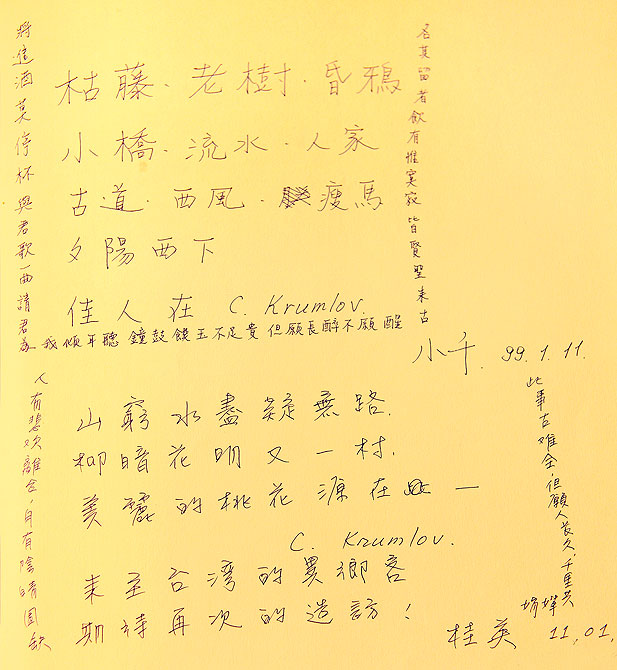 將進酒莫停杯與君歌一曲請君為
我傾耳聽 鐘鼓饌玉不足貴但願長醉不願醒
古來聖賢皆寂寞惟有飲者留其名
枯藤·老樹·昏鴉
小橋·流水·人家
古道·西風·瘦馬
夕陽西下
佳人在 C. Krumlov.
小千. 99.1.11.
人有悲欢離合,月有陰晴圓缺
此事古難全,但願人長久,千里共
嬋娟
山窮水盡疑無路.
柳暗花明又一村.
美麗的桃花源在 —
C. Krumlov.
來至台灣的異鄉客
期待再次的造訪!
桂英 11,01,